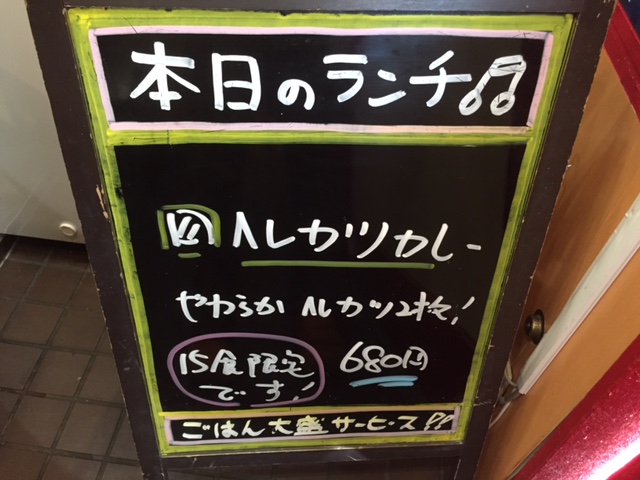 本日のランチ♫
㊃ヘレカツカレー
やわらかヘレカツ2枚!
15食限定です! 680円
ごはん大盛サービス!!